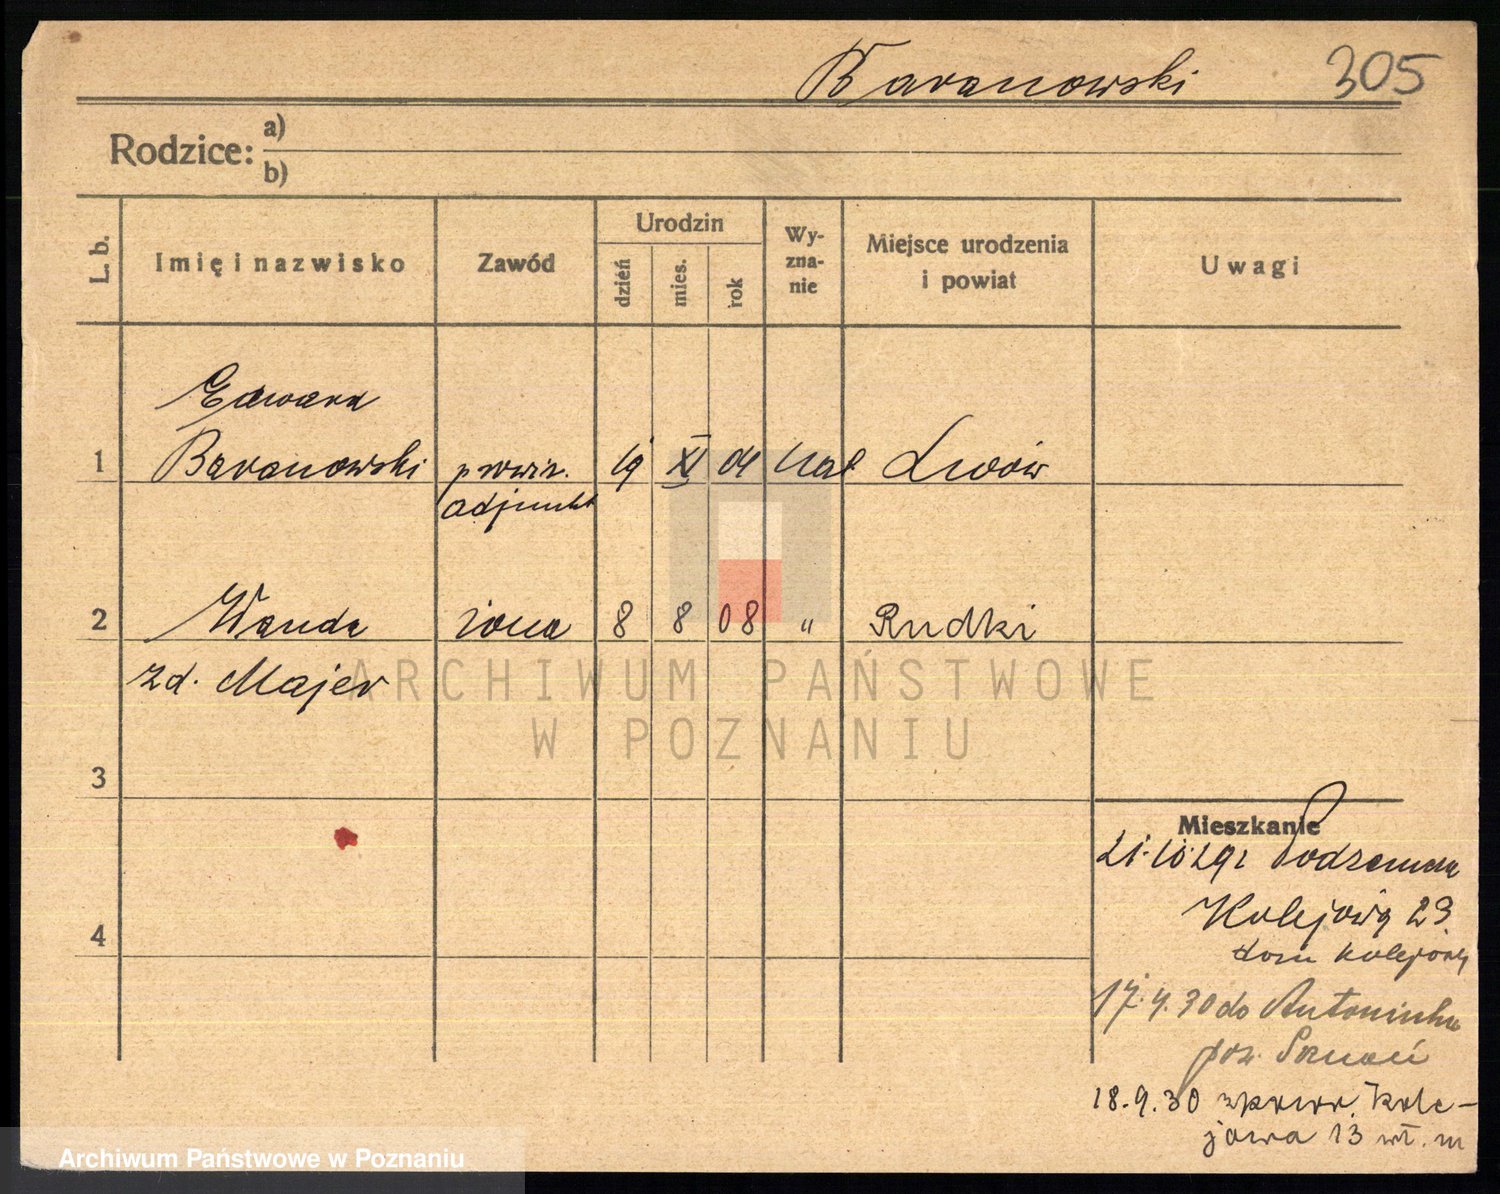 Baranowski 305
Rodzice: a)
b)
L. b. Imię i nazwisko Zawód Urodzin dzień mies. rok Wy-zna-nie Miejsce urodzenia i powiat Uwagi
Edward
1 Baranowski prowiz. 19 XI 04 kat Lwów
adjunkt
2 Wanda żona 8 8 08 " Rudki
zd. Majer
ARCHIWUM PAŃSTWOWE
W POZNANIU
3
Mieszkanie
21.10.29 z
Kolejowa 23
4
dom kolejowy
17.4.30 do Antoninka
pow. Poznań
18.9.30 Kole-
jowa 13 wł. m
Archiwum Państwowe w Poznaniu